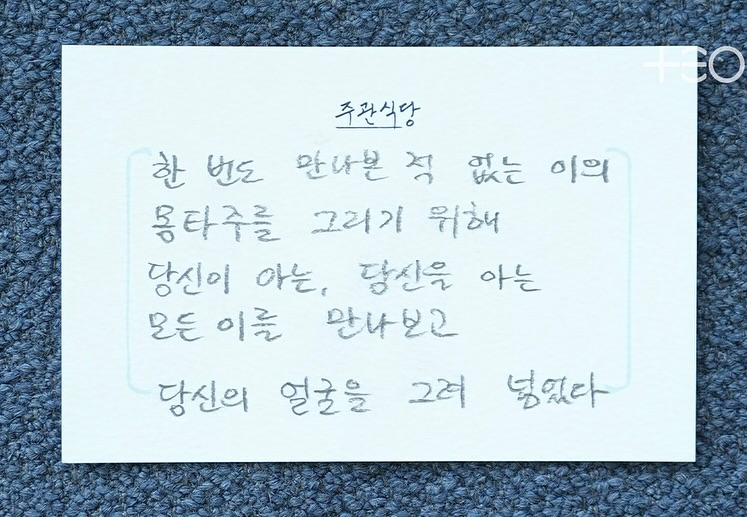 TEO
주관식당
한 번도 만나본 적 없는 이의
몽타주를 그리기 위해
당신이 아는, 당신을 아는
모든 이를 만나보고
당신의 얼굴을 그려 넣었다